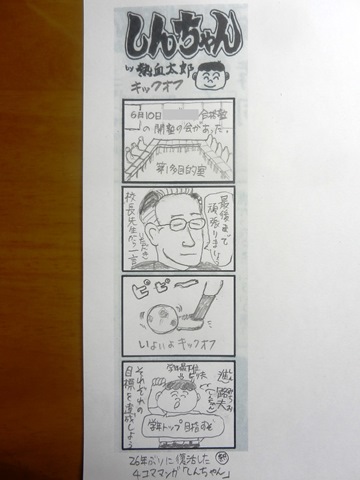 しんちゃん
by 熱血太郎
キックオフ
6月10日 合格塾
の開塾の会があった。
第1多目的室
最後まで
頑張りましょう
校長先生から一言
ピピー
いよいよ キックオフ
学年最下位
学年トップ目指すぞ
それぞれの
目標を達成しよう
26年ぶりに復活した
4コママンガ「しんちゃん」